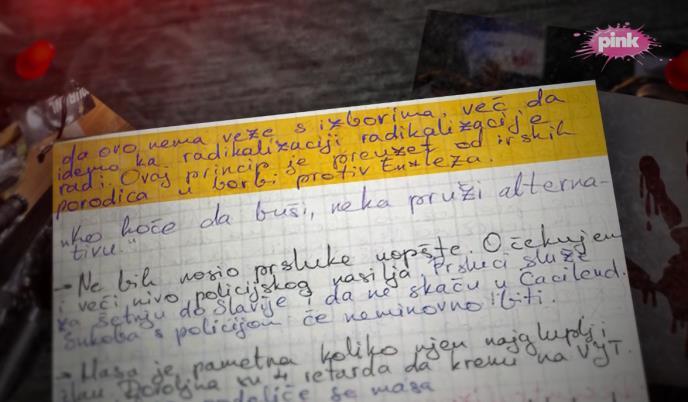 pink
da ovo nema veze s izborima, već da
idemo ka radikalizaciji radikalizacije
radi. Ovaj princip je preuzet od irskih
porodica u borbi protiv Engleza.
"Ko hoće da buši, neka pruži alterna-
tivu."
→ Ne bih nosio prsluke uopšte. Očekujem
i veći nivo policijskog nasilja. Prsluci služe
za šetnju do Slavije i da ne skaču u Caciland.
Sukob s policijom će neminovno biti.
→ Masa je pametna koliko njen najgluplji
član. Dovoljna su 4 retarda da krenu na VJT.
se masa